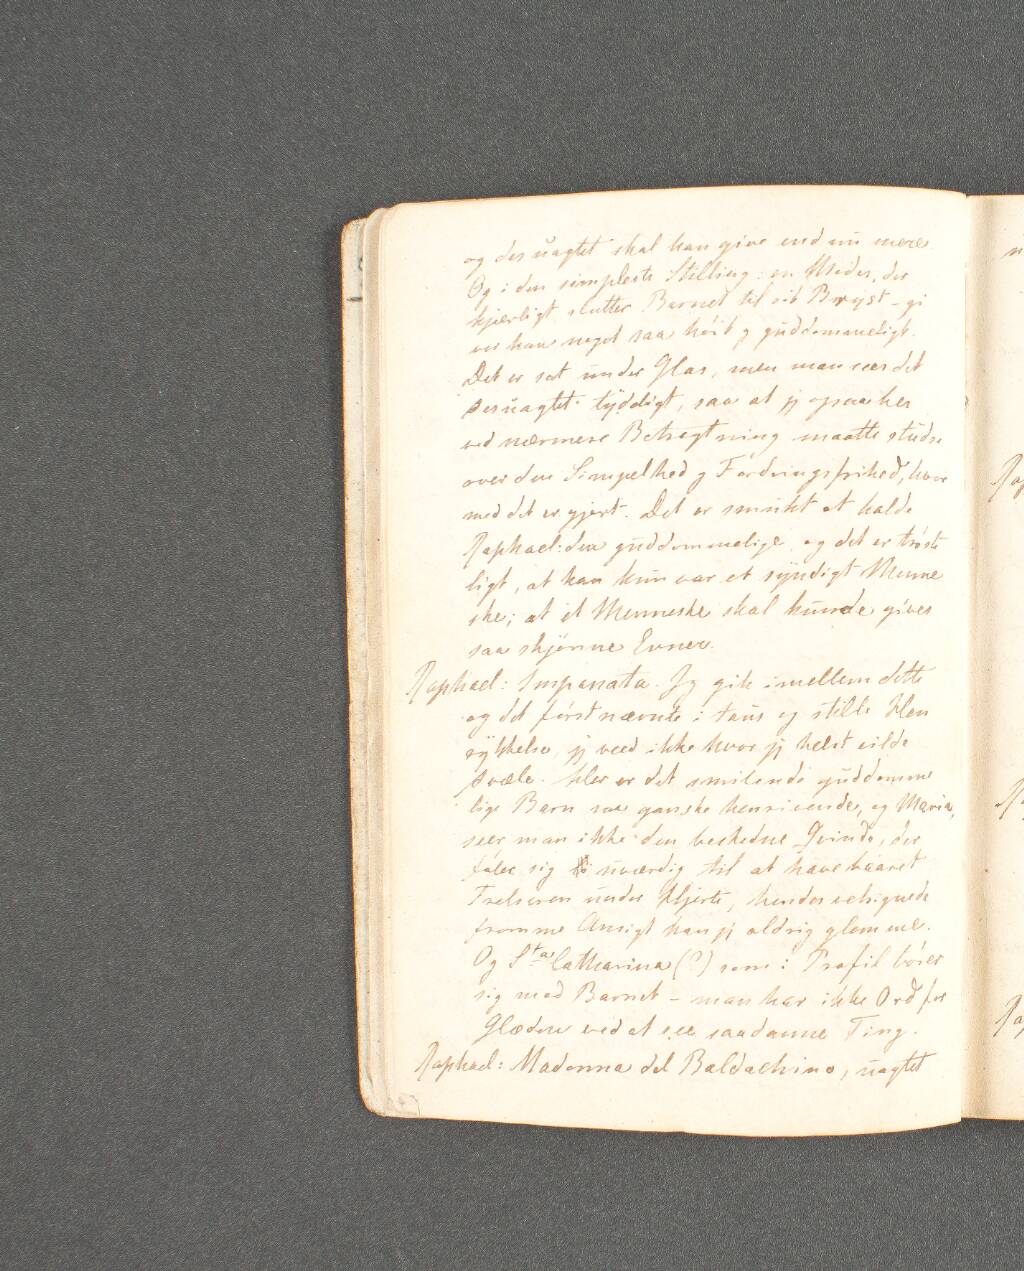 og desuagtet skal han give endnu mere
Og i den simpleste Stilling: en Moder, der
kjærligt slutter Barnet til sit Bryst - gi
ver han noget saa høit og guddommeligt.
Det er sat under Glas, men man seer det
desuagtet tydeligt, saa at jeg ogsaa her
ved nærmere Betragtning maatte studse
over den Simpelhed og Fordringsfrihed, hvor
med det er gjort. Det er smukt at kalde
Raphael: den guddommelige, og det er trøste
ligt, at han kun var et syndigt Menne
ske; at et Menneske skal kunde gives
saa skjønne Evner.
Raphael: Impanata. Jeg gik imellem dette
og det førstnævnte i taus og stille Hen
rykkelse, jeg veed ikke hvor jeg helst vilde
dvæle. Her er det smilende guddomme
lige Barn saa ganske henrivende, og Maria,
seer man ikke den beskedne Qvinde, der
føler sig uværdig til at have baaret
Frelseren under Hjerte, hendes velsignede
fromme Ansigt kan jeg aldrig glemme.
Og Sta Catharina (?) som i Profil bøier
sig mod Barnet - man har ikke Ord for
Glæden ved at see saadanne Ting.
Raphael: Madonna del Baldachino, uagtet